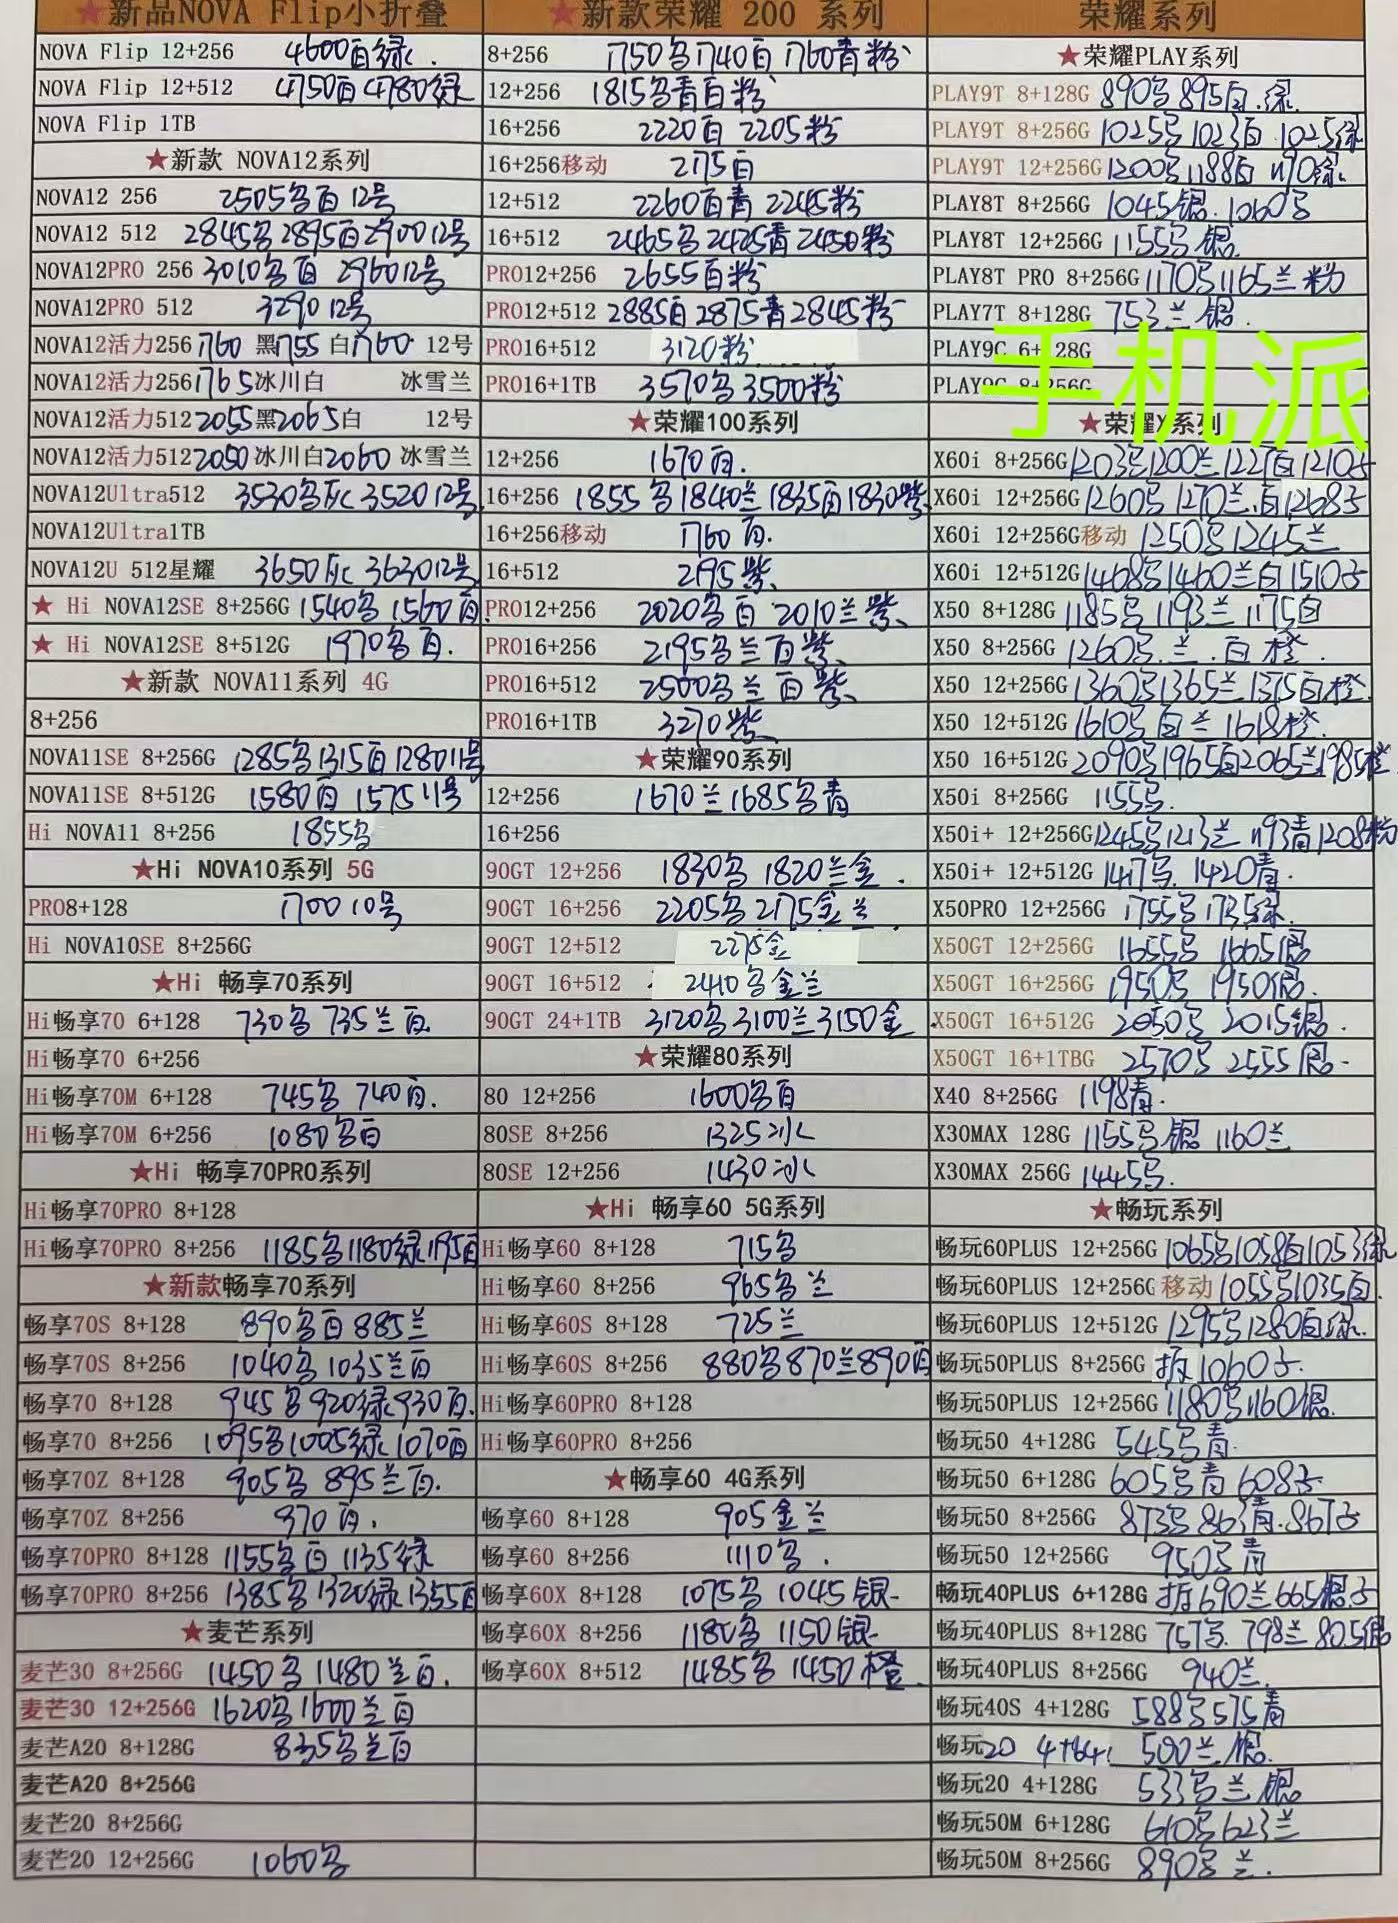 ★新品NOVA Flip小折叠
NOVA Flip 12+256 4600白绿.
NOVA Flip 12+512 4750白4780绿
NOVA Flip 1TB
★新款 NOVA12系列
NOVA12 256 2505白12号
NOVA12 512 2845 2895白2900 12号
NOVA12PRO 256 3010白 2960 12号
NOVA12PRO 512 3290 12号
NOVA12活力256 1760 黑1755 白1760 12号
NOVA12活力256 1765冰川白 冰雪兰
NOVA12活力512 2055黑2065白 12号
NOVA12活力512 2050冰川白2060 冰雪兰
NOVA12Ultra512 3530灰 3520 12号
NOVA12Ultra1TB
NOVA12U 512星耀 3650灰 3630 12号
★ Hi NOVA12SE 8+256G 1540 1560白
★ Hi NOVA12SE 8+512G 1970白.
★新款 NOVA11系列 4G
8+256
NOVA11SE 8+256G 1285 1315白1280 11号
NOVA11SE 8+512G 1580白 1575 11号
Hi NOVA11 8+256 1855
★Hi NOVA10系列 5G
PRO8+128 1700 10号
Hi NOVA10SE 8+256G
★Hi 畅享70系列
Hi畅享70 6+128 730 735兰白
Hi畅享70 6+256
Hi畅享70M 6+128 745 740白.
Hi畅享70M 6+256 1080白
★Hi 畅享70PRO系列
Hi畅享70PRO 8+128
Hi畅享70PRO 8+256 1185 1180绿1195白
★新款畅享70系列
畅享70S 8+128 890白 885兰
畅享70S 8+256 1040 1035兰白
畅享70 8+128 945 920绿930白.
畅享70 8+256 1095 1005绿1070白
畅享70Z 8+128 905 895兰白.
畅享70Z 8+256 970白.
畅享70PRO 8+128 1155白 1135绿
畅享70PRO 8+256 1385 1320绿1355白
★麦芒系列
麦芒30 8+256G 1450 1480兰白.
麦芒30 12+256G 1620 1600兰白
麦芒A20 8+128G 835兰白
麦芒A20 8+256G
麦芒20 8+256G
麦芒20 12+256G 1060
★新款荣耀 200 系列
8+256 1750 1740白 1760青粉
12+256 1815青白粉
16+256 2220白 2205粉
16+256移动 2175白
12+512 2260白青 2245粉
16+512 2465 2425青2450粉
PRO12+256 2655白粉
PRO12+512 2885白2875青2845粉
PRO16+512 3120粉
PRO16+1TB 3570 3500粉
★荣耀100系列
12+256 1670白.
16+256 1855 1840兰1835白1830紫
16+256移动 1760白.
16+512 2195紫
PRO12+256 2020白 2010兰紫
PRO16+256 2195兰白紫
PRO16+512 2500兰白紫
PRO16+1TB 3270紫
★荣耀90系列
12+256 1670兰1685青
16+256
90GT 12+256 1830 1820兰金.
90GT 16+256 2205 2175金兰
90GT 12+512 2275金
90GT 16+512 2410金兰
90GT 24+1TB 3120 3100兰3150金
★荣耀80系列
80 12+256 1600白
80SE 8+256 1325冰
80SE 12+256 1430冰
★Hi 畅享60 5G系列
Hi畅享60 8+128 715
Hi畅享60 8+256 965兰
Hi畅享60S 8+128 725兰
Hi畅享60S 8+256 880 870兰890白
Hi畅享60PRO 8+128
Hi畅享60PRO 8+256
★畅享60 4G系列
畅享60 8+128 905金兰
畅享60 8+256 1110.
畅享60X 8+128 1075 1045银
畅享60X 8+256 1180 1150银
畅享60X 8+512 1485 1450橙
荣耀系列
★荣耀PLAY系列
PLAY9T 8+128G 890 895白.绿
PLAY9T 8+256G 1025 1023白 1025绿
PLAY9T 12+256G 1200 1188白 1190绿
PLAY8T 8+256G 1045银.1060
PLAY8T 12+256G 1155银
PLAY8T PRO 8+256G 1170 1165兰粉
PLAY7T 8+128G 753兰银.
PLAY9C 6+128G
PLAY9C 8+256G
手机派
★荣耀X系列
X60i 8+256G 1203 1200兰1227白1210
X60i 12+256G 1260 1270兰.白1268
X60i 12+256G移动 1250 1245兰
X60i 12+512G 1468 1460兰白1510
X50 8+128G 1185 1193兰 1175白
X50 8+256G 1260.兰.白橙.
X50 12+256G 1360 1365兰1375白橙
X50 12+512G 1610白兰 1618橙
X50 16+512G 2090 1965白2065兰1985橙
X50i 8+256G 1155
X50i+ 12+256G 1245 1213兰 1193青1208粉
X50i+ 12+512G 1417 1420青.
X50PRO 12+256G 1755 1735绿
X50GT 12+256G 1655 1665银
X50GT 16+256G 1950 1950银.
X50GT 16+512G 2050 2015银.
X50GT 16+1TBG 2570 2555银
X40 8+256G 1198青.
X30MAX 128G 1155银 1160兰
X30MAX 256G 1445
★畅玩系列
畅玩60PLUS 12+256G 1065 1058白1053绿
畅玩60PLUS 12+256G 移动 1055 1035白
畅玩60PLUS 12+512G 1295 1280白绿.
畅玩50PLUS 8+256G 拆1060
畅玩50PLUS 12+256G 1180 1160银
畅玩50 4+128G 545青
畅玩50 6+128G 605青 608
畅玩50 8+256G 873 863青.867
畅玩50 12+256G 950青
畅玩40PLUS 6+128G 拆690兰665银
畅玩40PLUS 8+128G 757. 798兰 805银
畅玩40PLUS 8+256G 940兰
畅玩40S 4+128G 588 575青
畅玩20 4+64 500兰银
畅玩20 4+128G 533兰银
畅玩50M 6+128G 610 623兰
畅玩50M 8+256G 890兰.